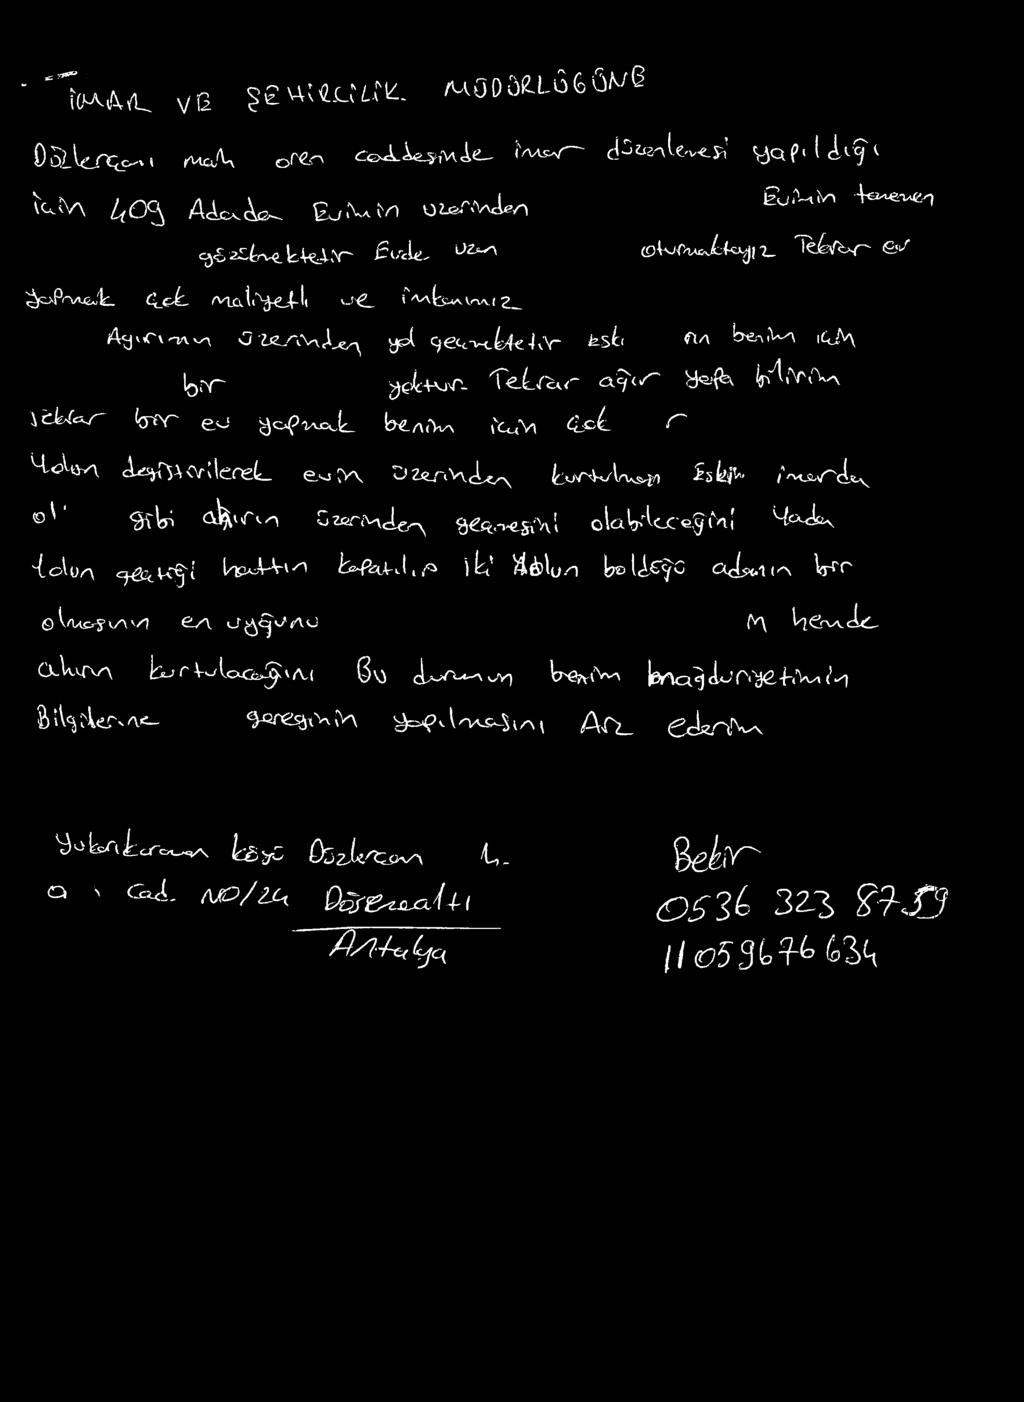 İMAR VE ŞEHİRCİLİK MÜDÜRLÜĞÜNE
Düzlerçamı mah ören caddesinde imar düzenlemesi yapıldığı
için 409 Adada Evimin üzerinden Evimin tamamen
gözükmektetir Evde uzun oturmaktayız Tekrar ev
yapmak çok maliyetli ve imkanımız
Ayırımın üzerinden yol geçmektetir Eski benim için
bir yoktur Tekrar ağır yapa bilirim
tekrar bir ev yapmak benim için çok
Yolun değiştirilerek evin üzerinden kurtulması Eski imarda
gibi ahırın üzerinden geçmesini olabileceğini Yada
Yolun geçtiği hattın kapatılıp iki Yolun böldüğü adanın bir
olmasının en uygunu hemde
ahırın kurtulacağını Bu durumun benim mağduriyetimin
Bilgilerine gereginin yapılmasını Arz ederim
Yukarıkaraman köyü Düzlercam Bekir
Cad. NO/24 Döşemealtı 0536 323 87 59
Antalya 11059676634